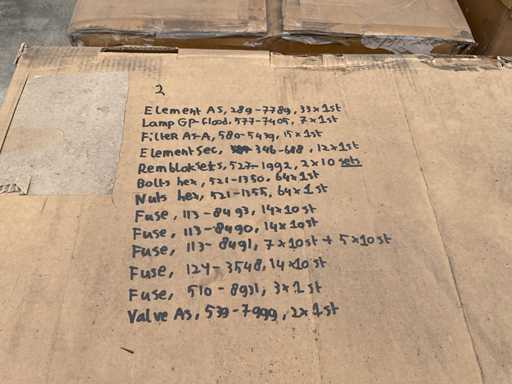 2
Element AS, 289-7789, 33x1st
Lamp GP-flood, 577-7405, 7x1st
Filter AS-A, 580-5439, 15x1st
Element Sec, 346-688, 12x1st
Remblok sets, 527-1992, 2x10 sets
Bolts hex, 521-1350, 64x1st
Nuts hex, 521-1355, 64x1st
Fuse, 113-8493, 14x10st
Fuse, 113-8490, 14x10st
Fuse, 113-8491, 7x10st + 5x10st
Fuse, 124-3548, 14x10st
Fuse, 510-8931, 3x1st
Valve AS, 539-7999, 2x1st